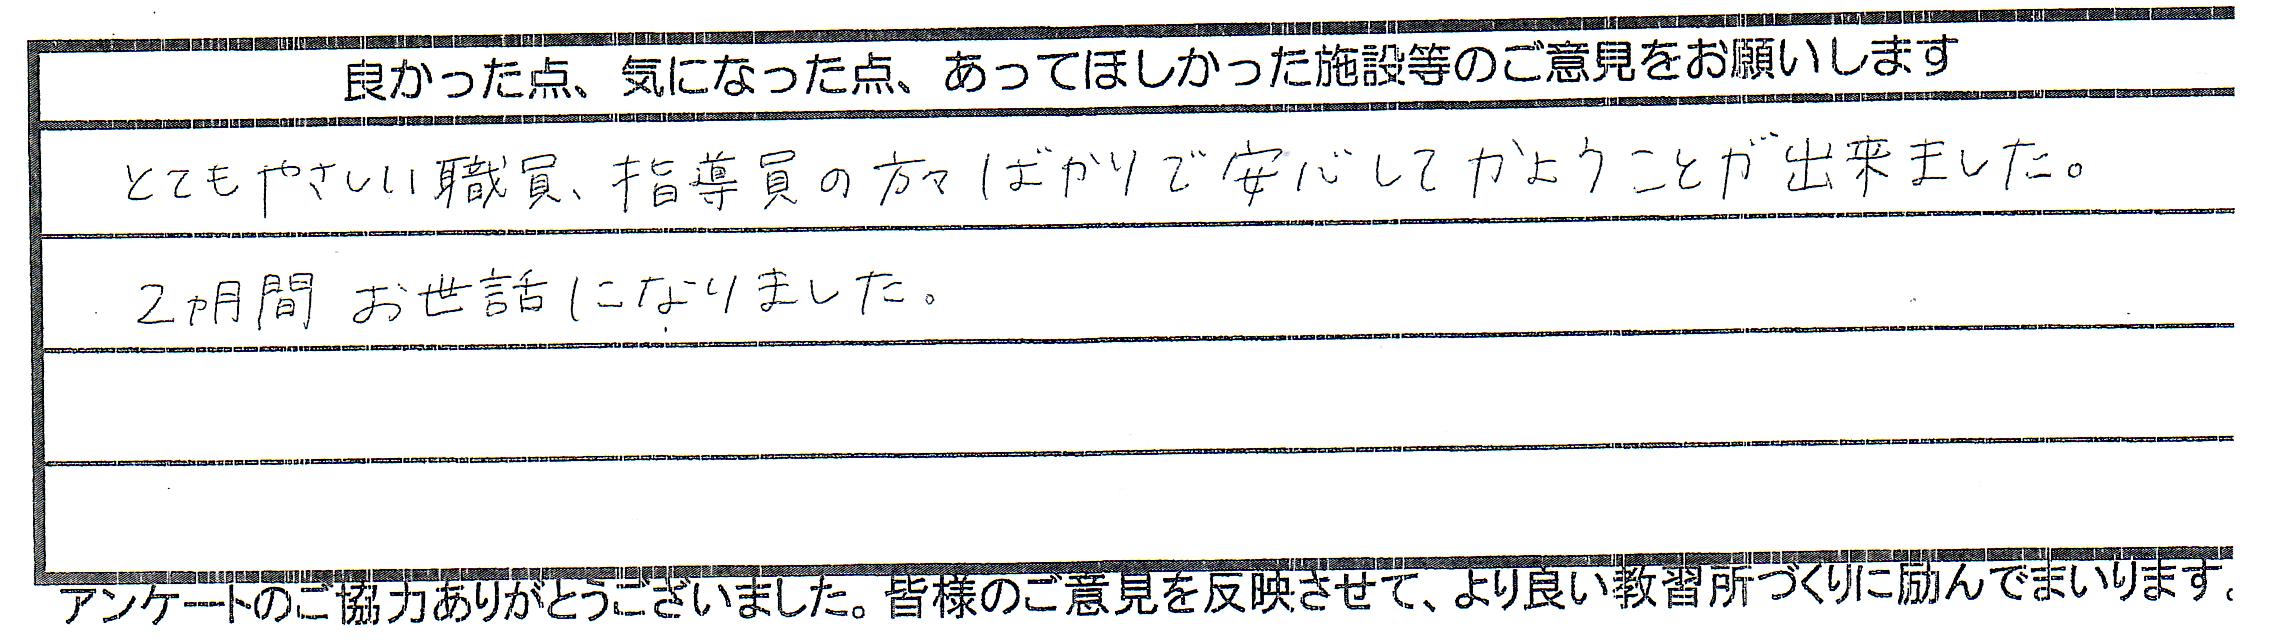 良かった点、気になった点、あってほしかった施設等のご意見をお願いします
とてもやさしい職員、指導員の方々ばかりで安心してかようことが出来ました。
2ヵ月間 お世話になりました。
アンケートのご協力ありがとうございました。皆様のご意見を反映させて、より良い教習所づくりに励んでまいります。